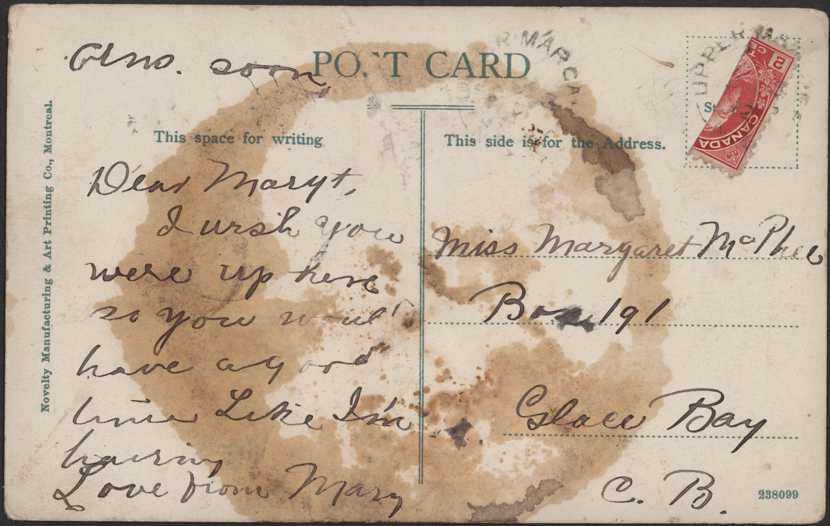 Ans. soon
POST CARD
This space for writing
This side is for the Address.
UPPER MA
R MARGA
2
CANADA
Novelty Manufacturing & Art Printing Co., Montreal.
Dear Maryt,
I wish you
were up here
so you woul'
have a good
time Like I'm
having
Love from Mary
Miss Margaret McPhee
Box 191
Glace Bay
C. B.
238099